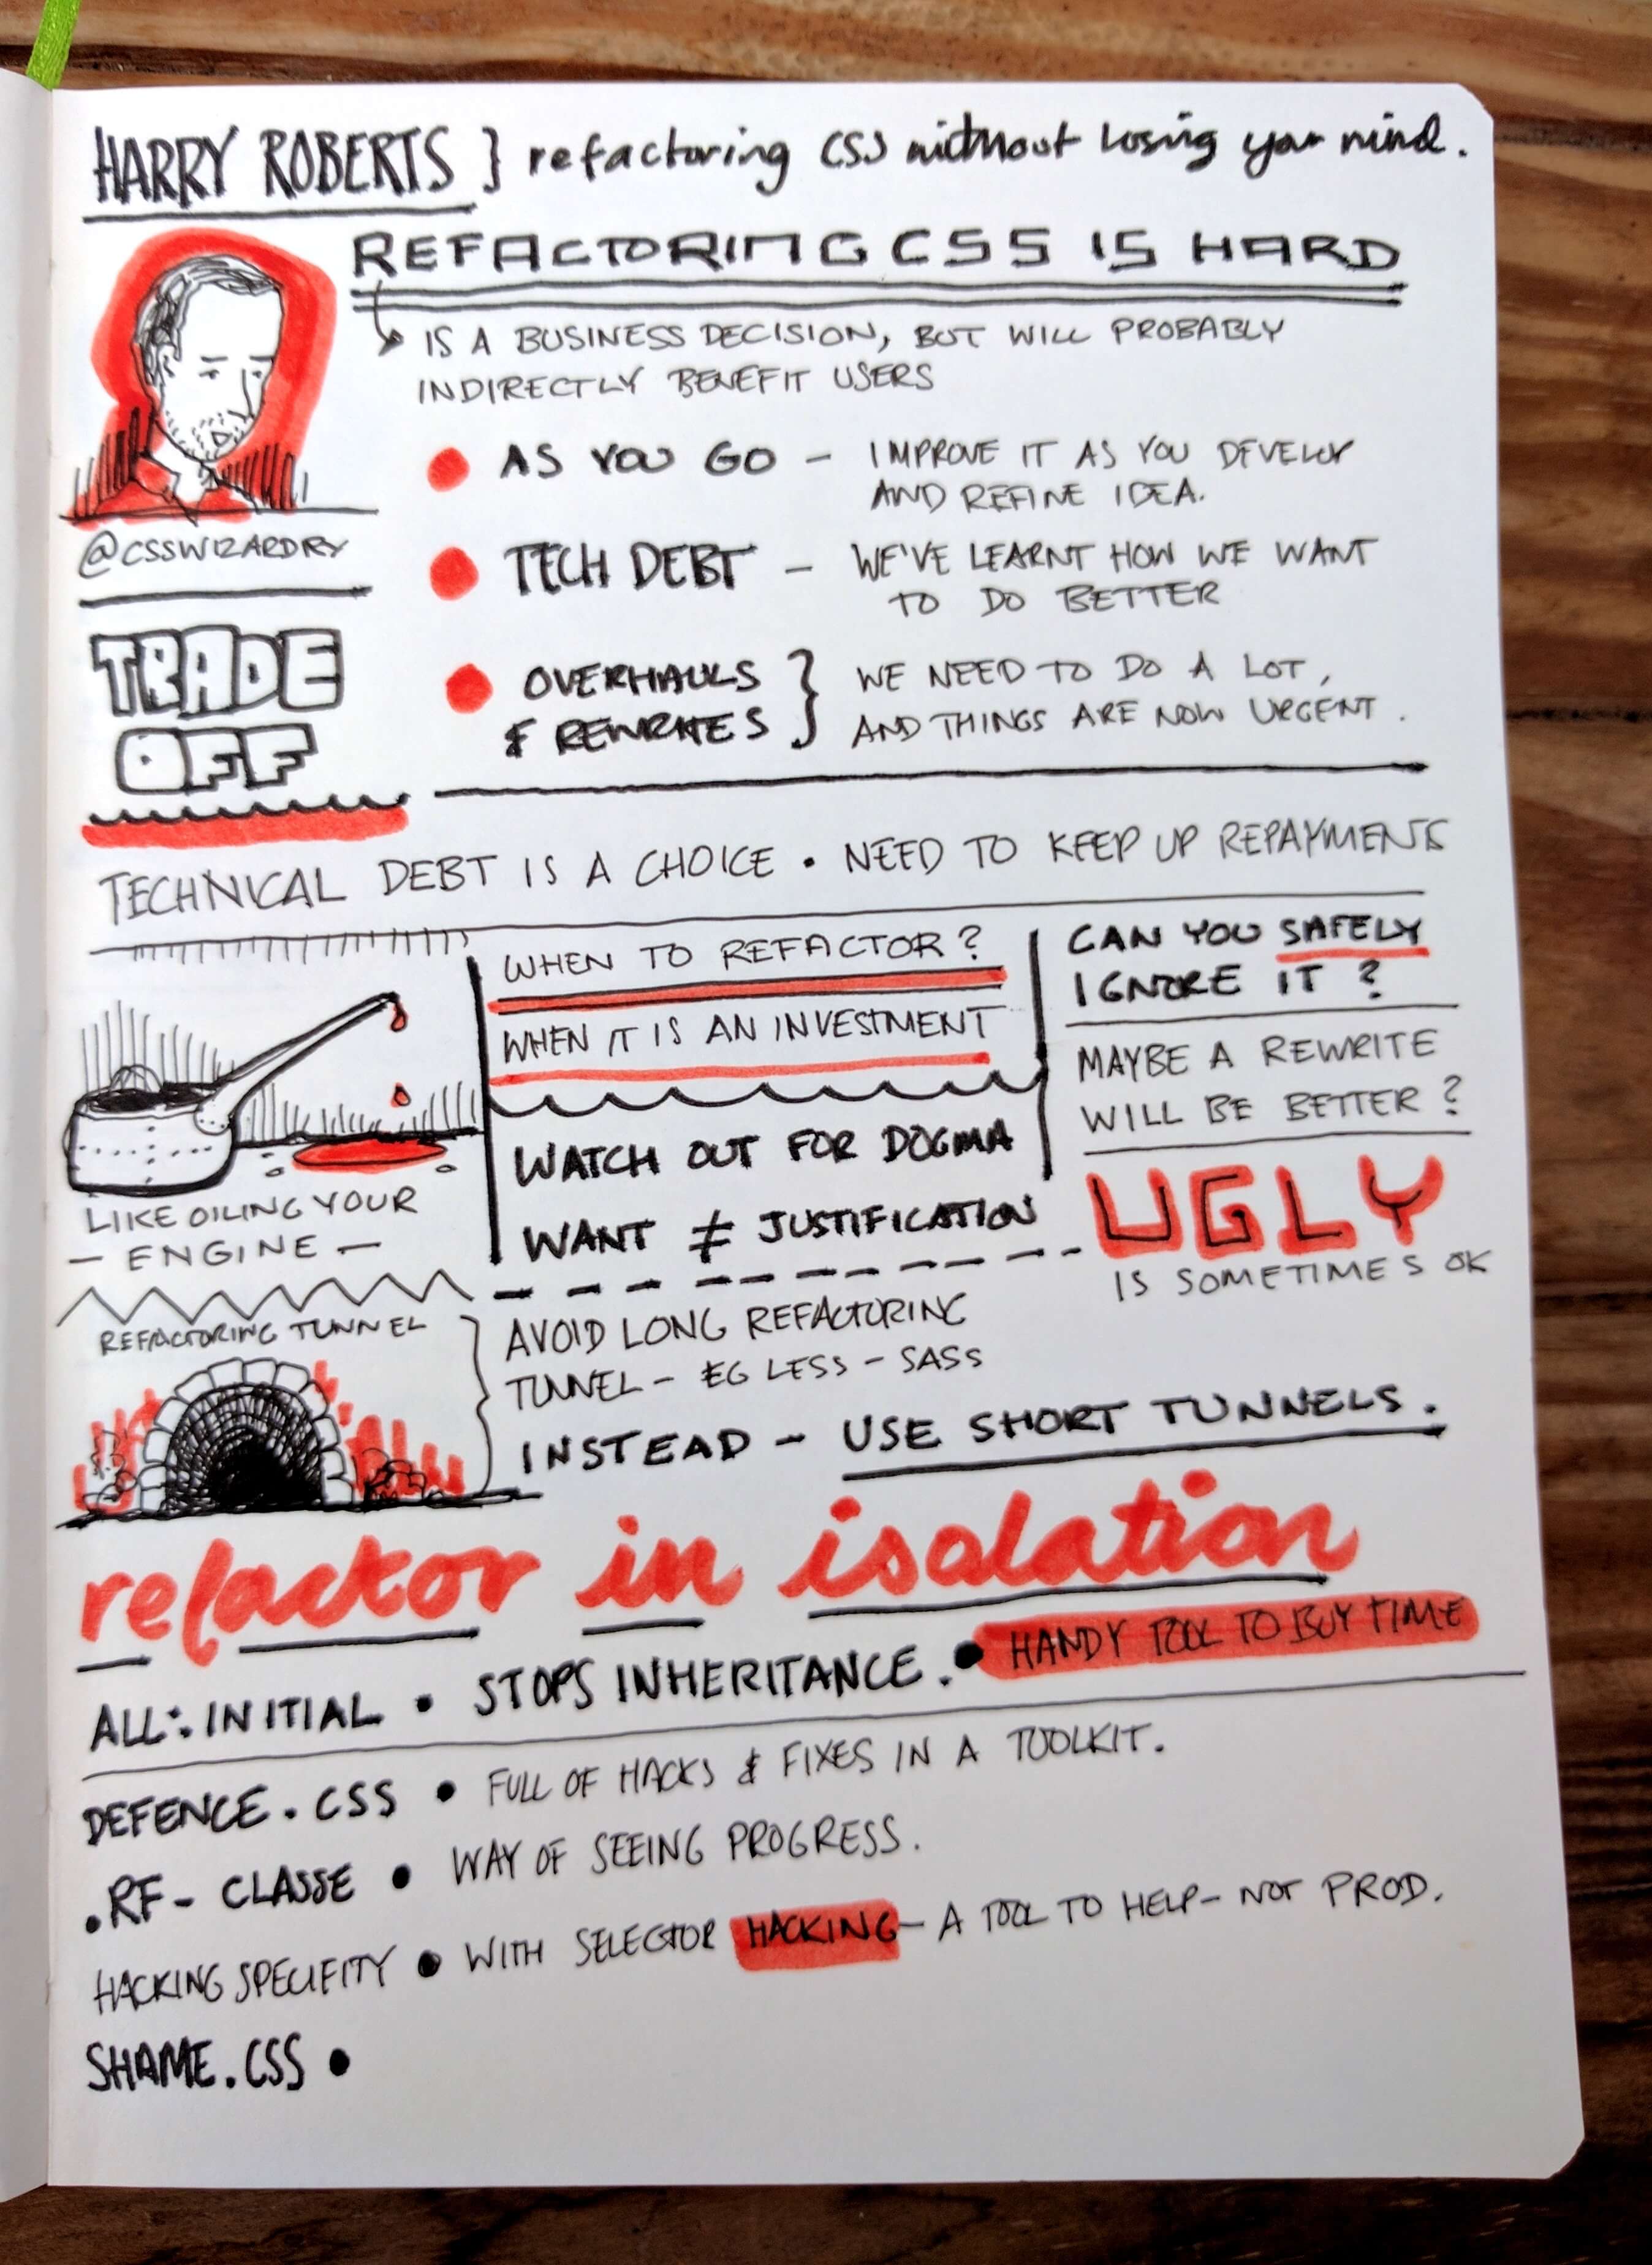 HARRY ROBERTS } refactoring CSS without losing your mind.
REFACTORING CSS IS HARD
IS A BUSINESS DECISION, BUT WILL PROBABLY
INDIRECTLY BENEFIT USERS
AS YOU GO – IMPROVE IT AS YOU DEVELOP
AND REFINE IDEA.
@CSSWIZARDRY
TECH DEBT – WE'VE LEARNT HOW WE WANT
TO DO BETTER
TRADE
OFF
OVERHAULS
& REWRITES } WE NEED TO DO A LOT,
AND THINGS ARE NOW URGENT.
TECHNICAL DEBT IS A CHOICE • NEED TO KEEP UP REPAYMENTS
LIKE OILING YOUR
– ENGINE –
WHEN TO REFACTOR?
WHEN IT IS AN INVESTMENT
WATCH OUT FOR DOGMA
WANT ≠ JUSTIFICATION
CAN YOU SAFELY
IGNORE IT?
MAYBE A REWRITE
WILL BE BETTER?
UGLY
IS SOMETIMES OK
REFACTORING TUNNEL
AVOID LONG REFACTORING
TUNNEL – EG LESS – SASS
INSTEAD – USE SHORT TUNNELS.
refactor in isolation
ALL: INITIAL • STOPS INHERITANCE. • HANDY TOOL TO BUY TIME
DEFENCE.CSS • FULL OF HACKS & FIXES IN A TOOLKIT.
.RF- CLASSE • WAY OF SEEING PROGRESS.
HACKING SPECIFITY • WITH SELECTOR HACKING – A TOOL TO HELP – NOT PROD.
SHAME.CSS •